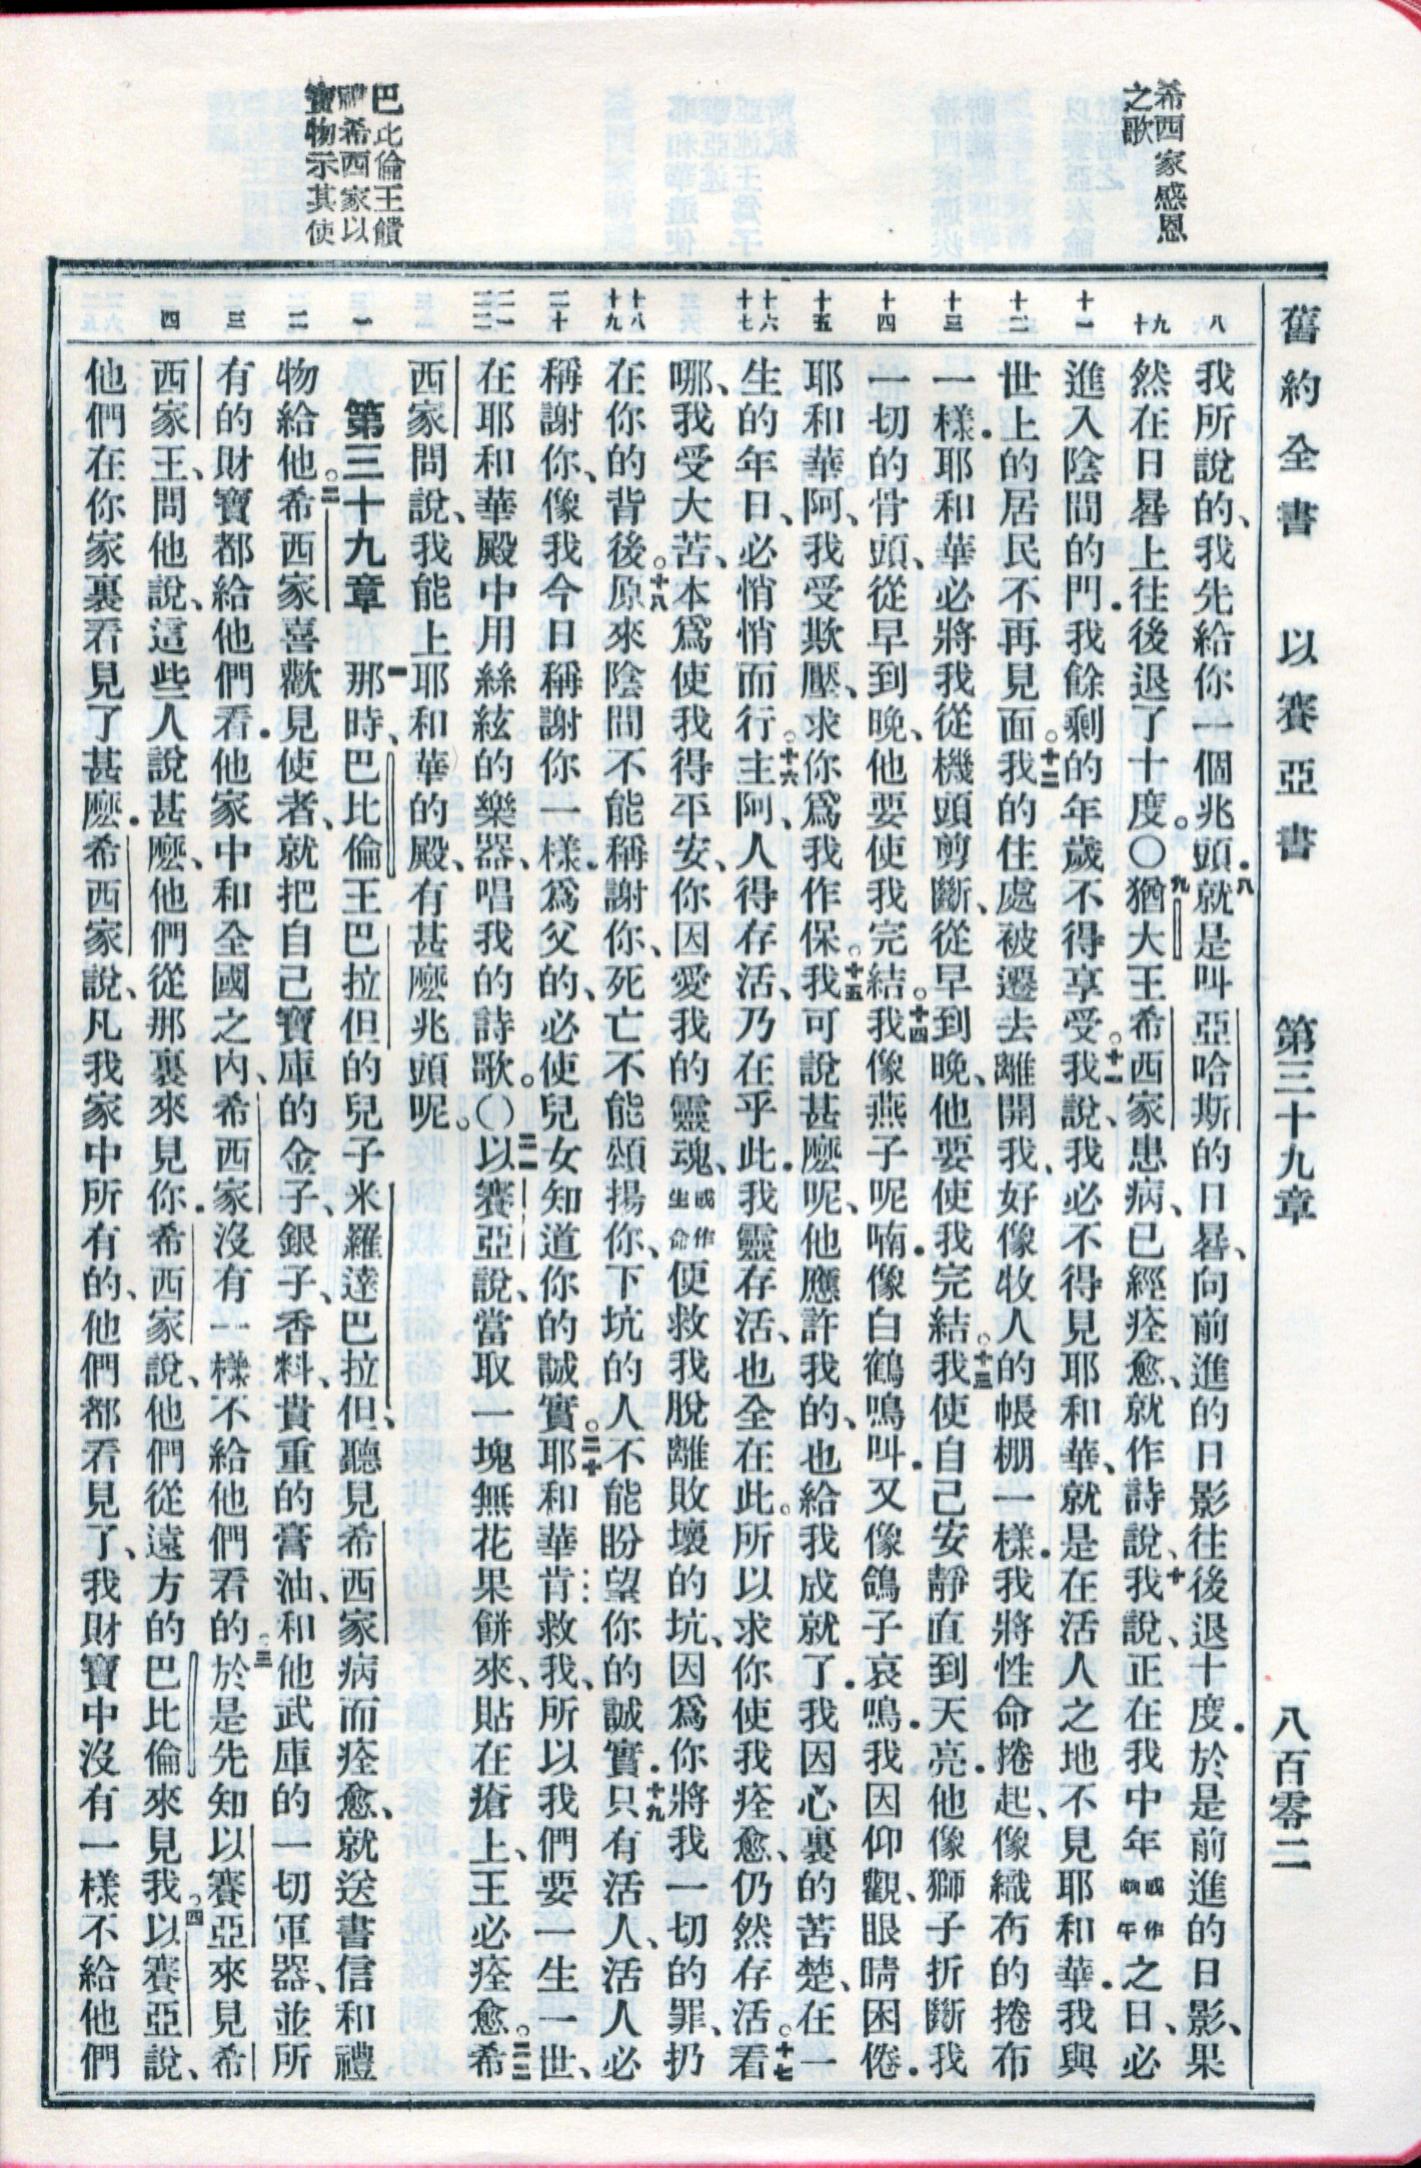 舊約全書　以賽亞書　第三十九章　八百零二
希西家感恩
之歌
巴比倫王饋
禮希西家以
寶物示其使
八
九
十
十一
十二
十三
十四
十五
十六
十七
十八
十九
二十
二一
二二
一
二
三
四
我所說的、我先給你一個兆頭．八就是叫亞哈斯的日晷、向前進的日影往後退十度．於是前進的日影、果
然在日晷上往後退了十度。〇九猶大王希西家患病、已經痊愈、就作詩說、十我說、正在我中年或作晌午之日、必
進入陰間的門．我餘剩的年歲不得享受。十一我說、我必不得見耶和華、就是在活人之地不見耶和華．我與
世上的居民不再見面。十二我的住處被遷去離開我、好像牧人的帳棚一樣．我將性命捲起、像織布的捲布
一樣．耶和華必將我從機頭剪斷、從早到晚、他要使我完結。十三我使自己安靜直到天亮．他像獅子折斷我
一切的骨頭、從早到晚、他要使我完結。十四我像燕子呢喃．像白鶴鳴叫．又像鴿子哀鳴．我因仰觀、眼睛困倦．
耶和華阿、我受欺壓、求你爲我作保。十五我可說甚麼呢、他應許我的、也給我成就了．我因心裏的苦楚、在一
生的年日、必悄悄而行。十六主阿、人得存活、乃在乎此．我靈存活、也全在此。所以求你使我痊愈、仍然存活。十七看
哪、我受大苦、本爲使我得平安、你因愛我的靈魂、或作生命便救我脫離敗壞的坑、因爲你將我一切的罪、扔
在你的背後。十八原來陰間不能稱謝你、死亡不能頌揚你、下坑的人不能盼望你的誠實．十九只有活人、活人必
稱謝你、像我今日稱謝你一樣．爲父的、必使兒女知道你的誠實。二十耶和華肯救我、所以我們要一生一世、
在耶和華殿中用絲絃的樂器、唱我的詩歌。〇二一以賽亞說、當取一塊無花果餅來、貼在瘡上、王必痊愈。二二希
西家問說、我能上耶和華的殿、有甚麼兆頭呢。
第三十九章　一那時、巴比倫王巴拉但的兒子米羅達巴拉但、聽見希西家病而痊愈、就送書信和禮
物給他。二希西家喜歡見使者、就把自己寶庫的金子、銀子、香料、貴重的膏油、和他武庫的一切軍器、並所
有的財寶都給他們看．他家中和全國之內、希西家沒有一樣不給他們看的。三於是先知以賽亞來見希
西家王、問他說、這些人說甚麼、他們從那裏來見你．希西家說、他們從遠方的巴比倫來見我。四以賽亞說、
他們在你家裏看見了甚麼．希西家說、凡我家中所有的、他們都看見了、我財寶中沒有一樣不給他們